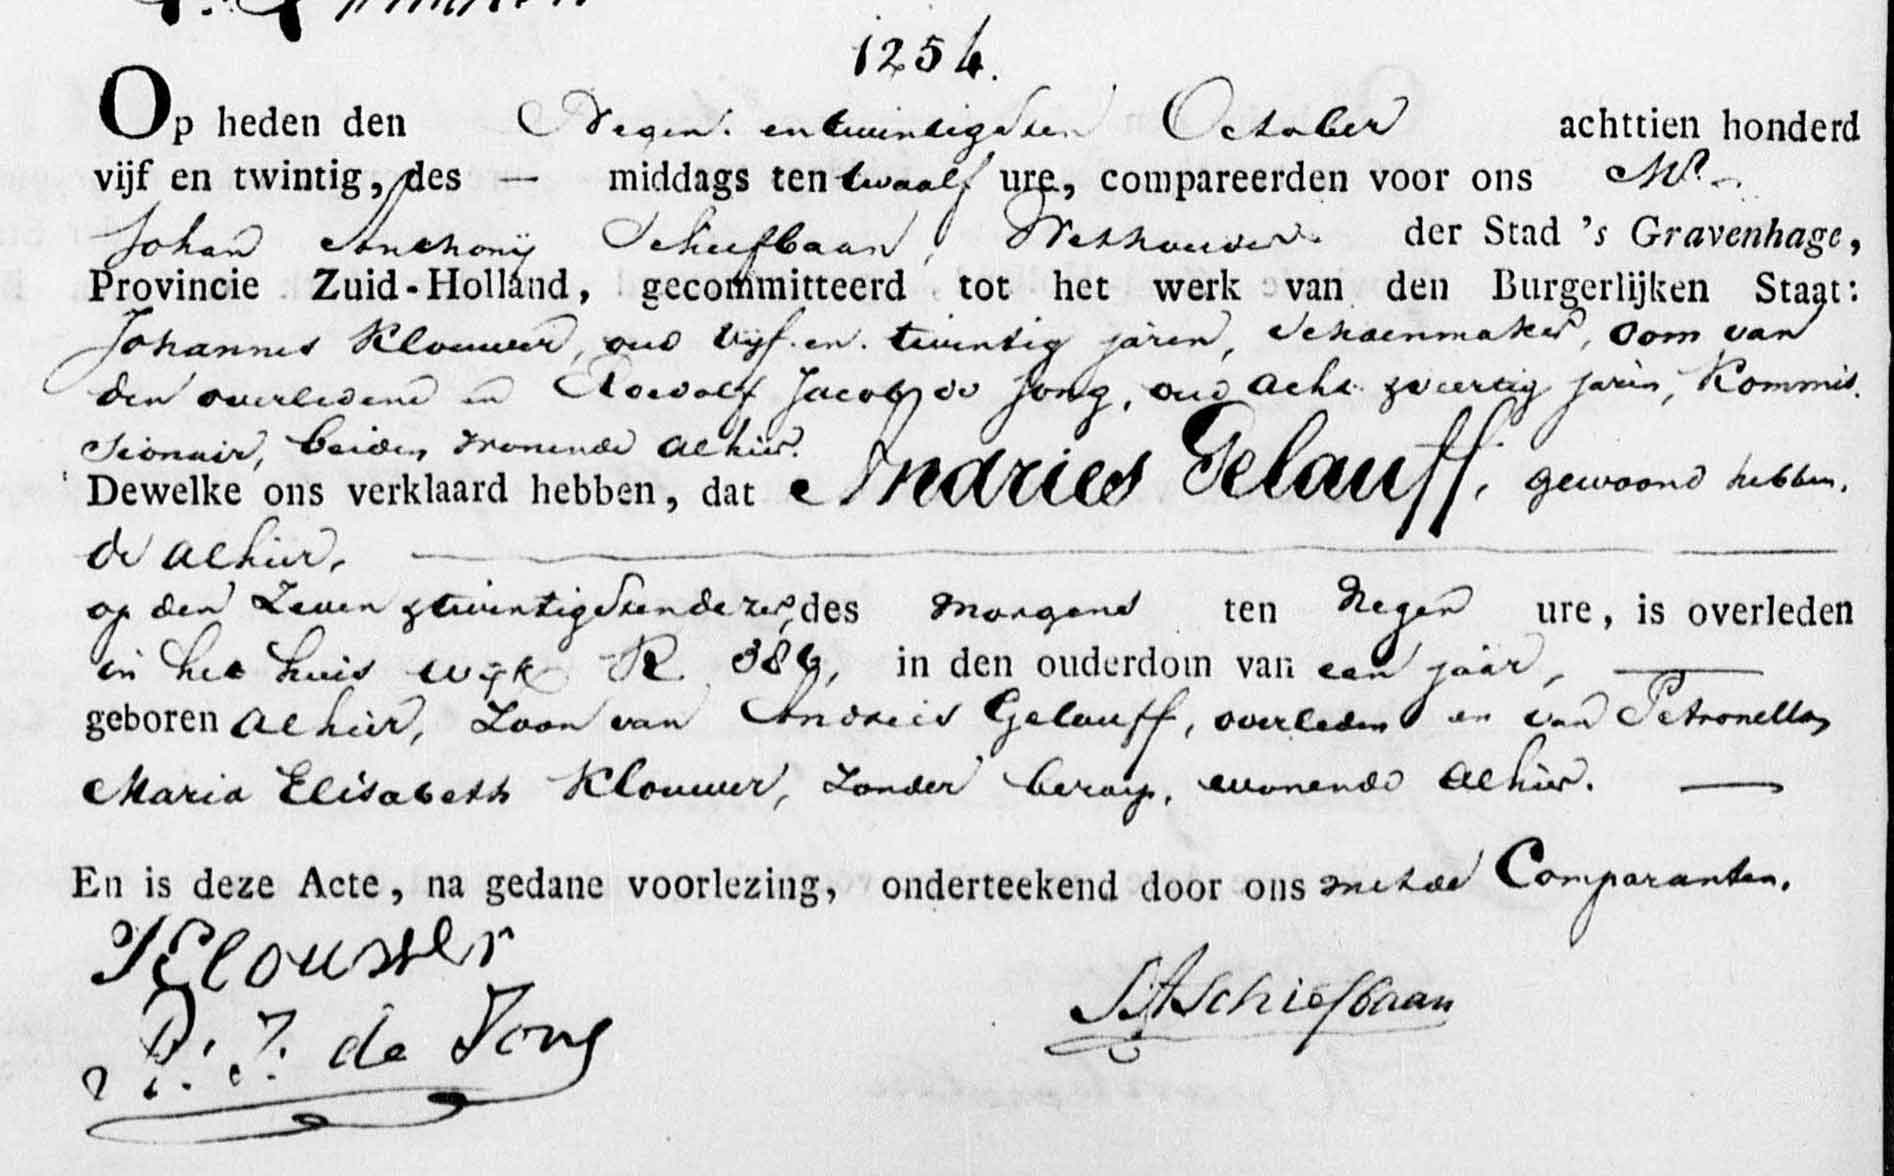 1254.
Op heden den Negen en twintigsten October achttien honderd
vijf en twintig, des — middags ten twaalf ure, compareerden voor ons Mr.
Johan Anthonij Schiefbaan, Wethouder der Stad 's Gravenhage,
Provincie Zuid-Holland, gecommitteerd tot het werk van den Burgerlijken Staat:
Johannes Klouwer, oud vijf en twintig jaren, Schoenmaker, oom van
den overledene en Roedolf Jacob de Jong, oud acht & veertig jaren, Kommis-
sionair, beiden wonende alhier.
Dewelke ons verklaard hebben, dat Andries Gelauff, gewoond hebben-
de alhier,
op den Zeven & twintigsten dezer, des morgens ten Negen ure, is overleden
in het huis wijk R 384, in den ouderdom van een jaar, —
geboren alhier, Zoon van Andreis Gelauff, overleden en van Petronella
Maria Elisabeth Klouwer, zonder beroep, wonende alhier. —
En is deze Acte, na gedane voorlezing, onderteekend door ons met de Comparanten.
J Klouwer
R. J. de Jong
J A Schiefbaan